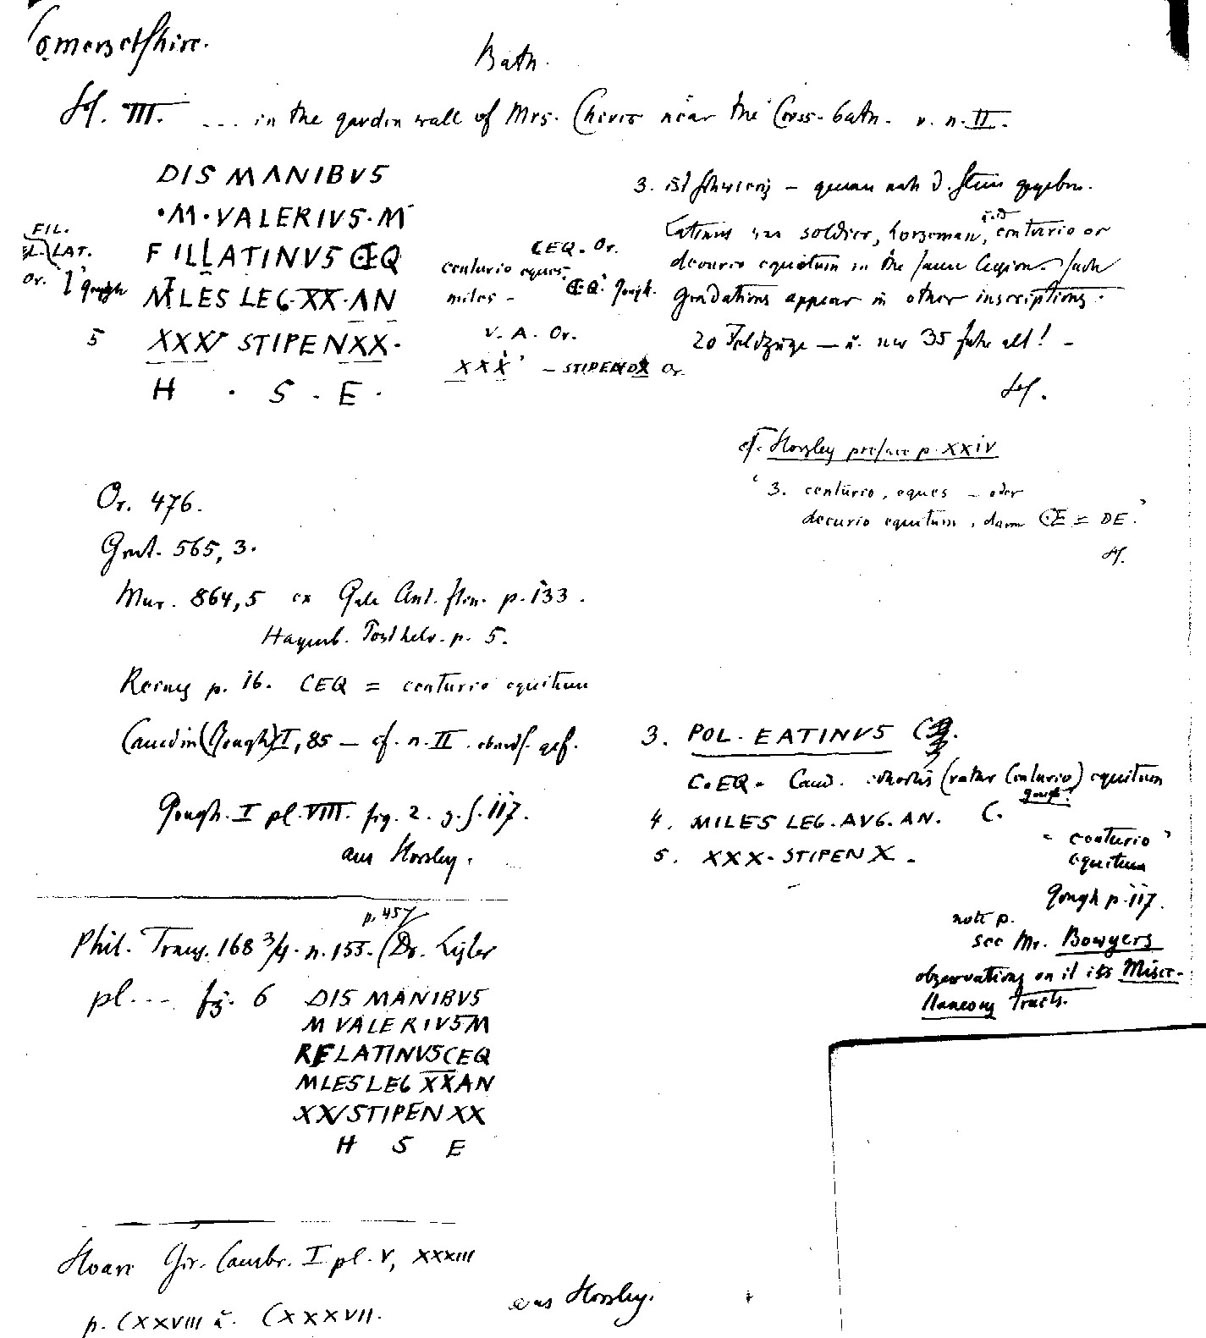 Somersetshire.
Bath.
Hf. III. ... in the garden wall of Mrs. Chivers near the Cross-bath. v. n. II.
DIS MANIBVS
·M·VALERIVS·M
FILLATINVS CEQ
MILES LEG·XX·AN
5 XXXV STIPEN XX·
H · S · E ·
FIL.
LAT.
Or. Gough
CEQ. Or.
centurio eques
CEQ. Gough.
miles -
V. A. Or.
XXX - STIPEND X Or.
3. ist schwierig - genau nach d. Stein gegeben.
Latinus was soldier, horseman, centurio or
decurio equitum in the same legion. Such
gradations appear in other inscriptions.
20 Feldzüge - u. nur 35 Jahr alt! -
Hf.
cf. Horsley preface p. XXIV
' 3. centurio, eques - oder
decurio equitum, dann CE = DE.'
Hf.
Or. 476.
Grut. 565, 3.
Mur. 864, 5 ex Gale Ant. Itin. p. 133.
Hagenb. p. 5.
p. 16. CEQ = centurio equitum
Camden (Gough) I, 85 - cf. n. II. gef.
Gough. I pl. VIII. fig. 2. z. S. 117.
aus Horsley.
3. POL. EATINVS
C.EQ. Camd. cohortis (rather Centurio) equitum
Gough.
4. MILES LEG. AVG. AN. C.
5. XXX. STIPEN X.
" centurio "
equitum
Gough p. 117.
note p.
see Mr. Bowyers
observations on it in his Misce-
llaneous Tracts.
Phil. Trans. 168 3/4. n. 155. (Dr. Lister
p. 457
pl... fig. 6
DIS MANIBVS
M VALERIVS M
RELATINVS CEQ
MLES LEG XX AN
XXV STIPEN XX
H S E
Hoare Gir. Cambr. I pl. V, XXXIII
p. CXXVIII u. CXXXVII.
aus Horsley.